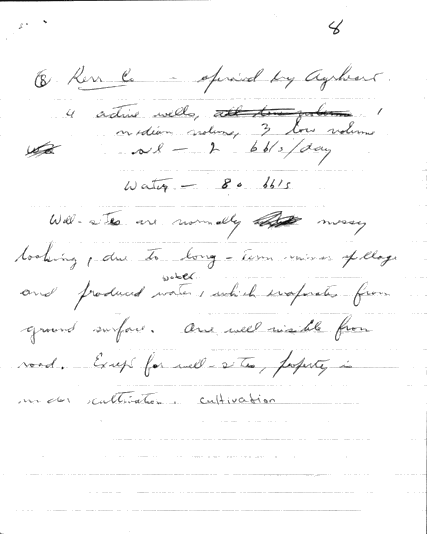 8
⑧ Kerr Co — operated by
4 active wells, 1
median volume, 3 low volume
oil — 2 bbls/day
Water — 80 bbls
Well-sites are normally messy
looking, due to long-term minor spillage
water
and produced water, which evaporates from
ground surface. One well visible from
road. Except for well-sites, property is
under cultivation. cultivation